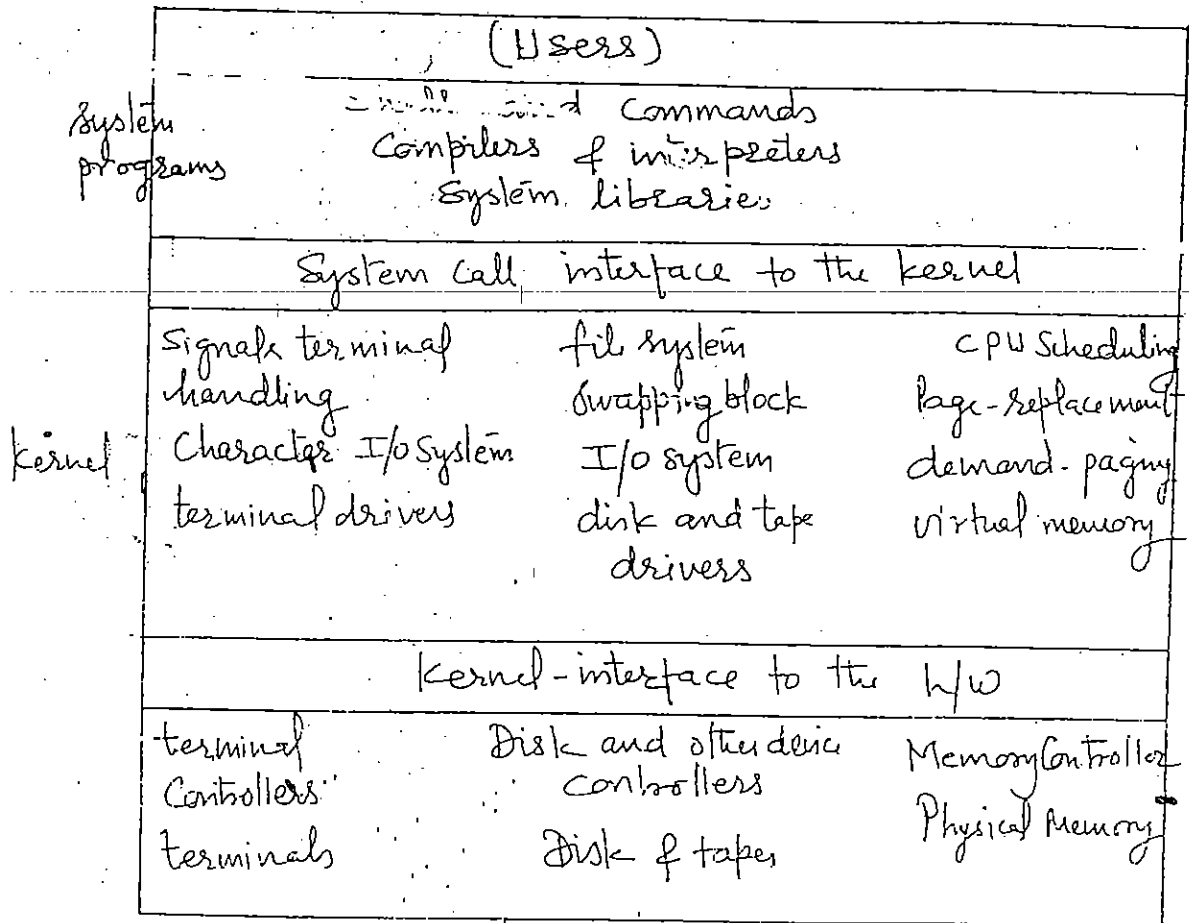 (Users)
system
programs
commands
Compilers & interpreters
System libraries
System Call interface to the kernel
kernel
Signals terminal
handling
Character I/O System
terminal drivers
file system
swapping block
I/O system
disk and tape
drivers
CPU Scheduling
Page-replacement
demand-paging
virtual memory
kernel-interface to the h/w
terminal
Controllers
terminals
Disk and other device
controllers
Disk & tapes
Memory Controller
Physical Memory